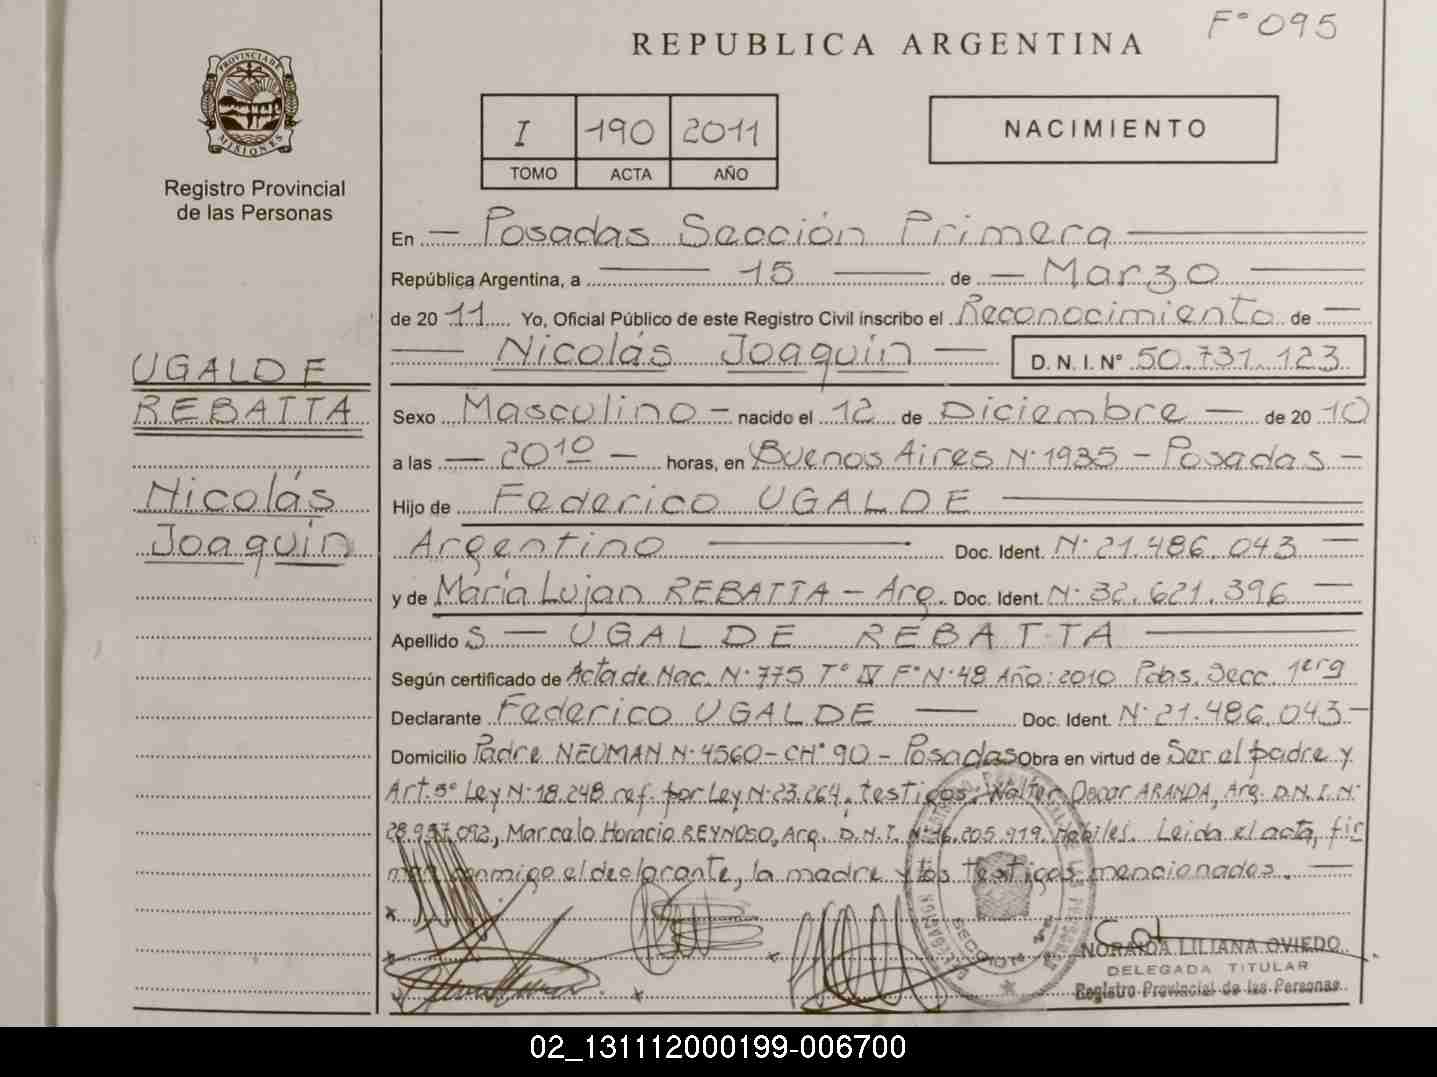 F° 095
REPUBLICA ARGENTINA
PROVINCIA DE MISIONES
Registro Provincial
de las Personas
I 190 2011
TOMO ACTA AÑO
NACIMIENTO
UGALDE
REBATTA
Nicolás
Joaquín
En — Posadas Sección Primera —
República Argentina, a — 15 — de — Marzo —
de 20 11 Yo, Oficial Público de este Registro Civil inscribo el Reconocimiento de —
— Nicolás Joaquín — D. N. I. N° 50.731.123
Sexo Masculino — nacido el 12 de Diciembre — de 20 10
a las — 20 10 — horas, en Buenos Aires N° 1935 - Posadas -
Hijo de Federico UGALDE —
Argentino — Doc. Ident. N° 21.486.043 —
y de María Lujan REBATTA - Arg. Doc. Ident. N° 32.621.396 —
Apellido S — UGALDE REBATTA —
Según certificado de Acta de Nac. N° 775 T° IV F° N° 48 Año: 2010 Pdas. Secc. 1era
Declarante Federico UGALDE — Doc. Ident. N° 21.486.043 -
Domicilio Padre NEUMAN N° 4560 - CH° 90 - Posadas Obra en virtud de Ser el padre y
Art. 5° Ley N° 18.248 ref. por Ley N° 23.264, testigos, Walter Oscar ARANDA, Arg. D.N.I. N°
28.957.092, Marcalo Horacio REYNOSO, Arg. D.N.I. N° 16.205.919. Habiles. Leida el acta, fir
man conmigo el declarante, la madre y los testigos mencionados. —
NORAIDA LILIANA OVIEDO
DELEGADA TITULAR
Registro Provincial de las Personas
02_131112000199-006700